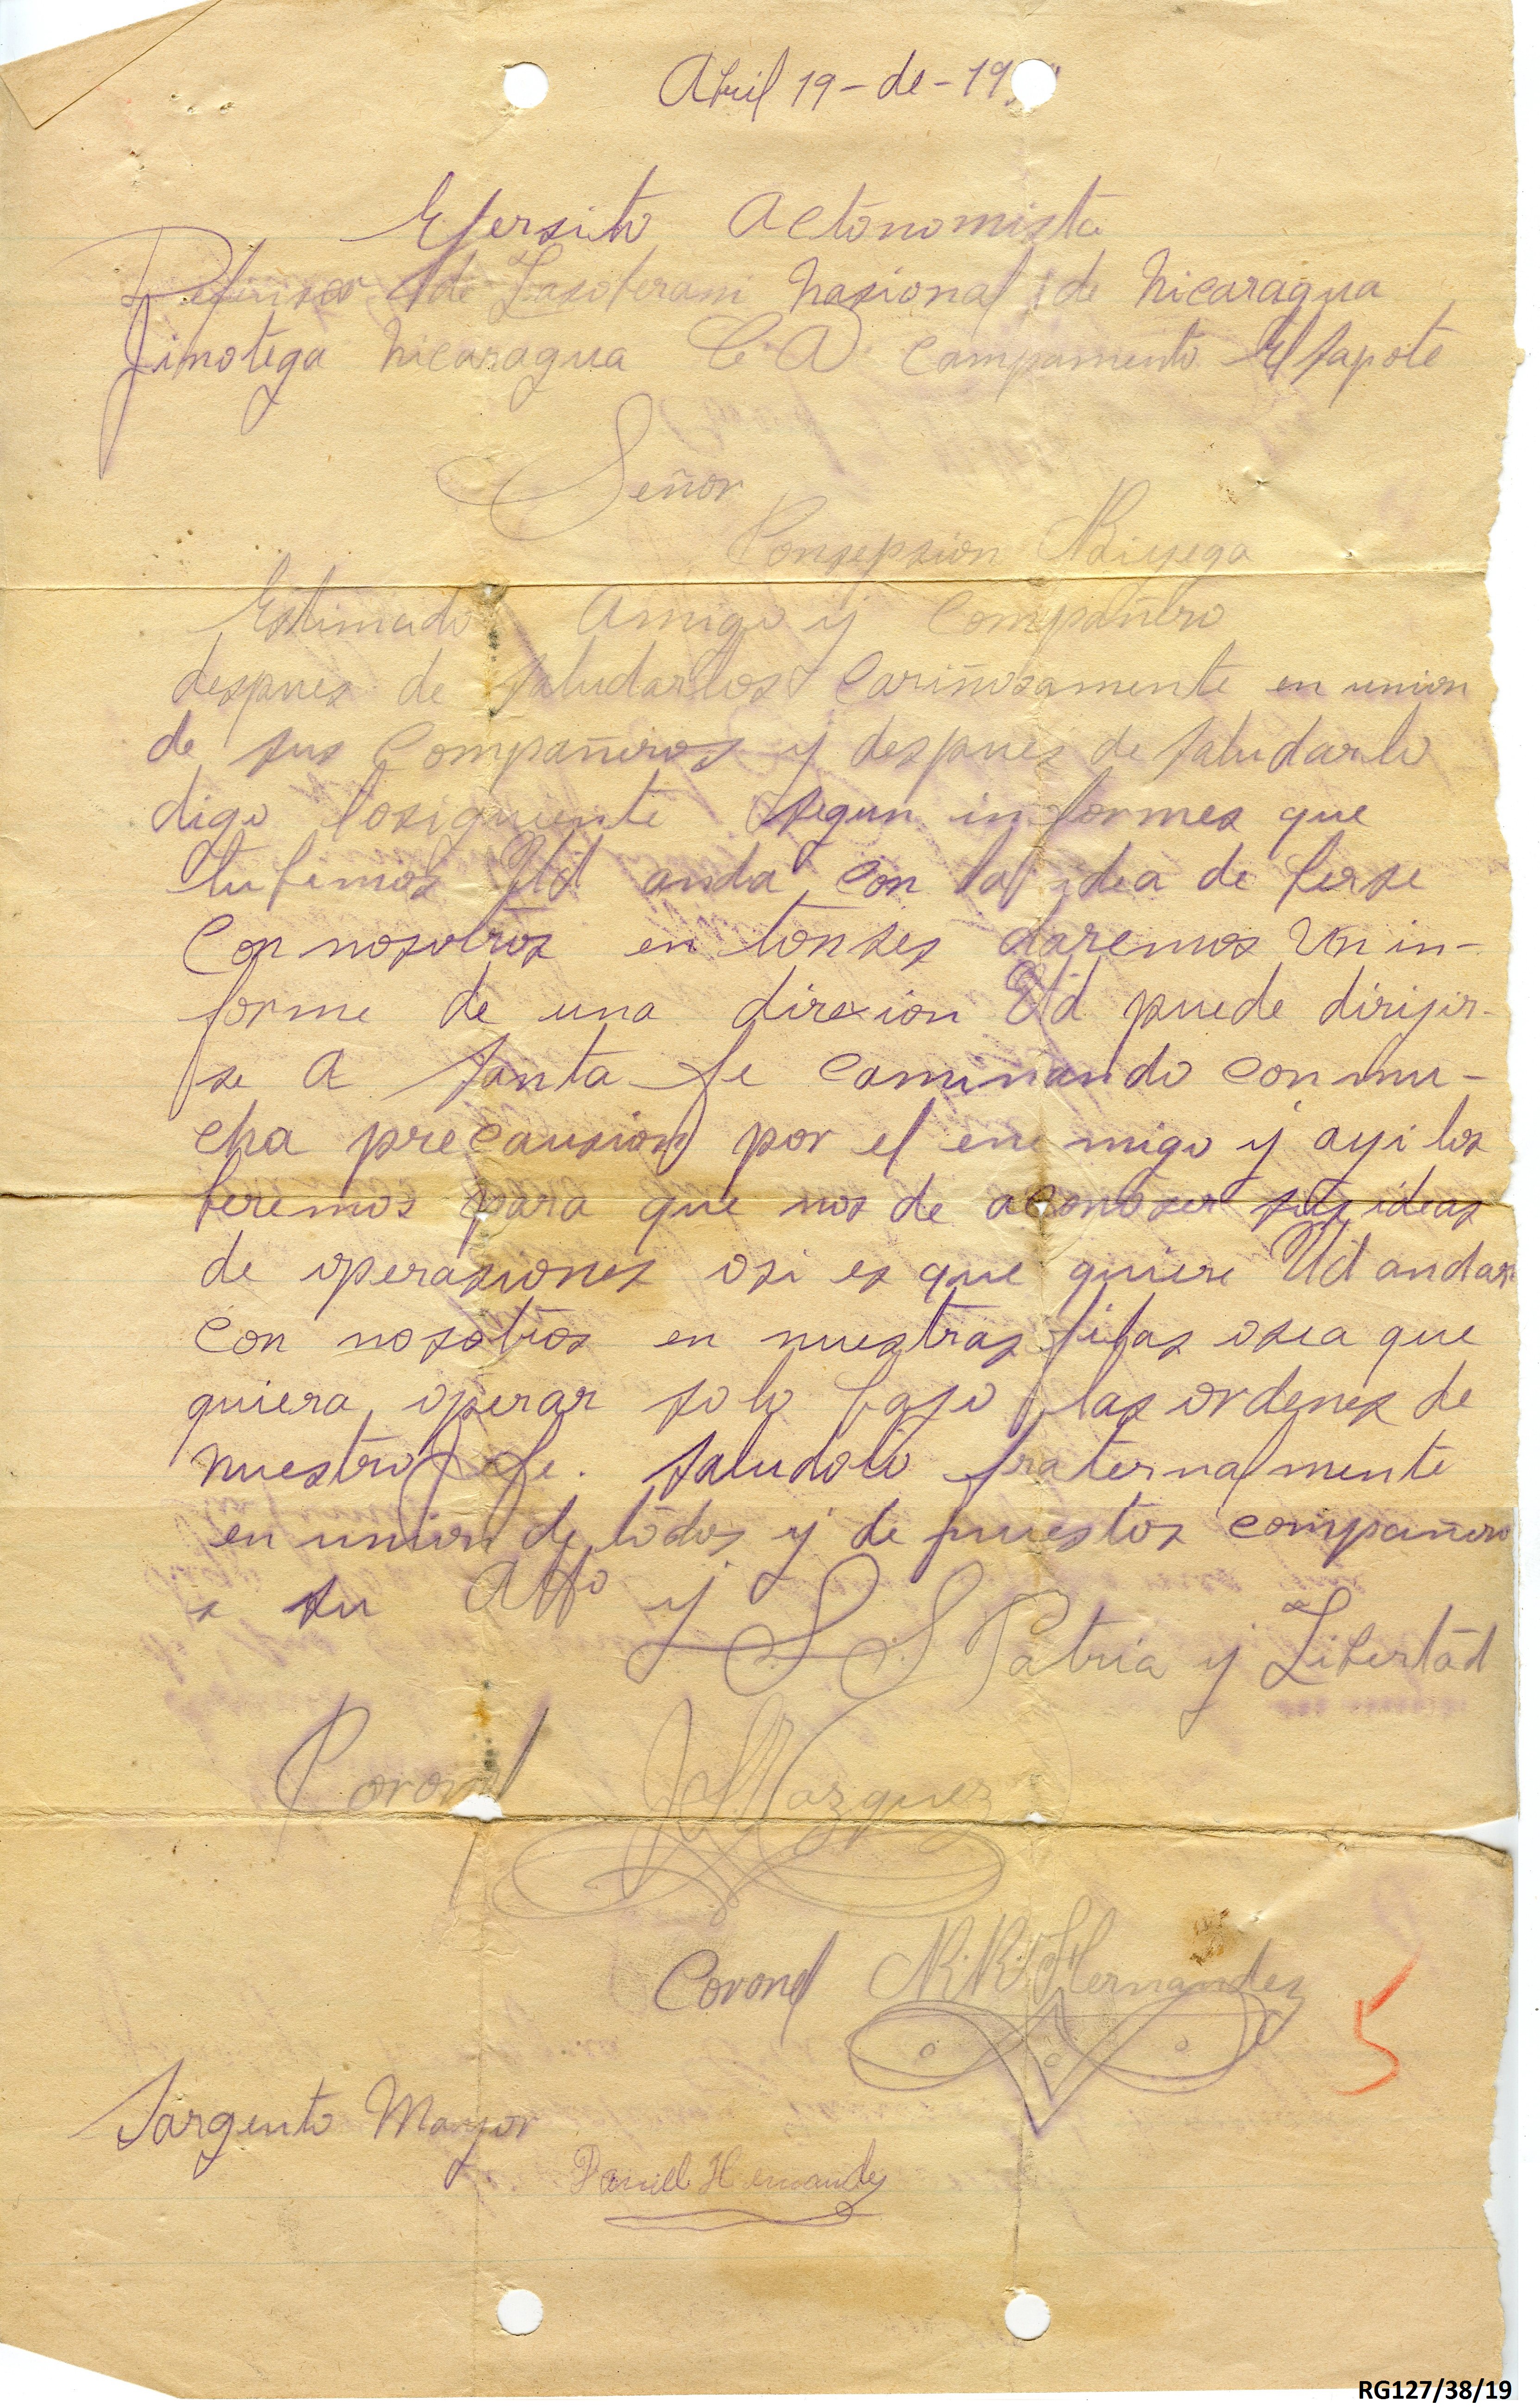 Abril 19 - de - 19
Ejersito Actonomista
Defensor de Lasoberani Nasional de Nicaragua
Jinotega Nicaragua C. A. Campamento El Sapote
Señor
Consepsion
Estimado Amigo y Compañero
despues de saludarlos Cariñosamente en union
de sus Compañeros y despues de saludarlo
digo losiguiente segun informes que
tubimos Ud anda con la idea de berse
Con nosotros en tonses daremos Un in-
forme de una direxion Ud puede dirijir-
se a Santa fe Caminando Con mu-
cha precausion por el enemigo y ayi los
beremos para que nos de aconoser sus ideas
de operasiones osi es que quiere Ud andar
Con nosotros en nuestras filas osea que
quiera operar solo bajo las ordenes de
nuestro Jefe. Saludolo fraternalmente
en union de todos y de nuestos compañero
s su Atto y S. S. Patria y Libertad
Coronel J Vazquez
Coronel R. R. Hernandez
5
Sargento Mayor
Daniel Hernandez
RG127/38/19